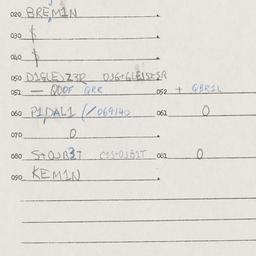 020 BREM1N
030 $
040 $
050 D1GLEJZ3R DJG+GLEJSZ1R
051 — QDOF QRR 052 + QBR1L
060 P1DAL1 (/069140 061 0
070 0
080 S+OJB3T C1S+OJB1T 081 0
090 KEM1N